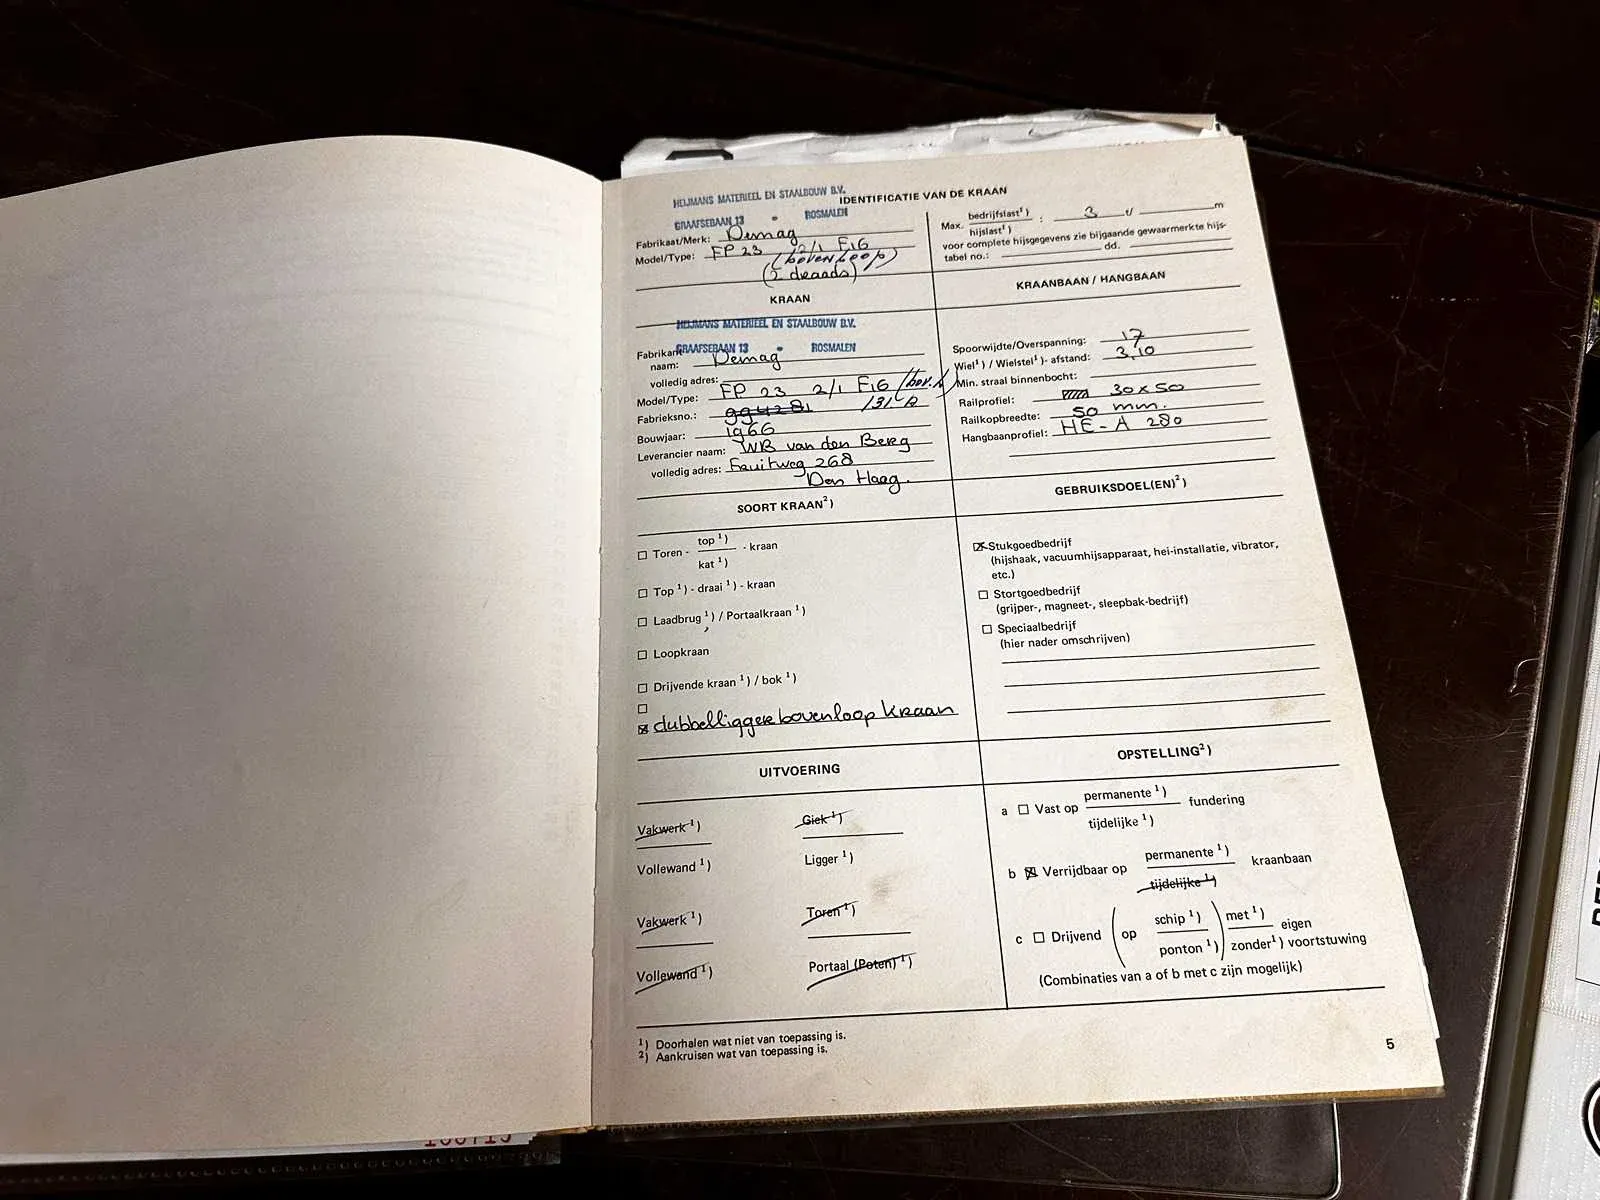 HEIJMANS MATERIEEL EN STAALBOUW B.V.
GRAAFSEBAAN 13 - ROSMALEN
IDENTIFICATIE VAN DE KRAAN
Fabrikaat/Merk: Demag
Model/Type: FP 23 2/1 F16
(bovenloop)
(2 draads)
Max. bedrijfslast¹)
hijslast¹) : 3 t/ m
voor complete hijsgegevens zie bijgaande gewaarmerkte hijs-
tabel no.: dd.
KRAAN
HEIJMANS MATERIEEL EN STAALBOUW B.V.
GRAAFSEBAAN 13 - ROSMALEN
Fabrikant
naam: Demag
volledig adres:
Model/Type: FP 23 2/1 F16
Fabrieksno.: 994281
Bouwjaar: 1966
Leverancier naam: WB van den Berg
volledig adres: 268
Den Haag.
KRAANBAAN / HANGBAAN
Spoorwijdte/Overspanning: 17
Wiel¹) / Wielstel¹)- afstand: 3,10
Min. straal binnenbocht:
Railprofiel: 30x50
Railkopbreedte: 50 mm.
Hangbaanprofiel: HE-A 280
SOORT KRAAN²)
Toren - top¹)
kat¹) - kraan
Top¹) - draai¹) - kraan
Laadbrug¹) / Portaalkraan¹)
Loopkraan
Drijvende kraan¹) / bok¹)
dubbelligger bovenloop kraan
GEBRUIKSDOEL(EN)²)
Stukgoedbedrijf
(hijshaak, vacuumhijsapparaat, hei-installatie, vibrator,
etc.)
Stortgoedbedrijf
(grijper-, magneet-, sleepbak-bedrijf)
Speciaalbedrijf
(hier nader omschrijven)
UITVOERING
Vakwerk¹) Giek¹)
Vollewand¹) Ligger¹)
Vakwerk¹) Toren¹)
Vollewand¹) Portaal (Poten)¹)
OPSTELLING²)
a Vast op permanente¹)
tijdelijke¹) fundering
b Verrijdbaar op permanente¹)
tijdelijke¹) kraanbaan
c Drijvend (op schip¹)
ponton¹)) met¹)
zonder¹) eigen
voortstuwing
(Combinaties van a of b met c zijn mogelijk)
¹) Doorhalen wat niet van toepassing is.
²) Aankruisen wat van toepassing is.
5